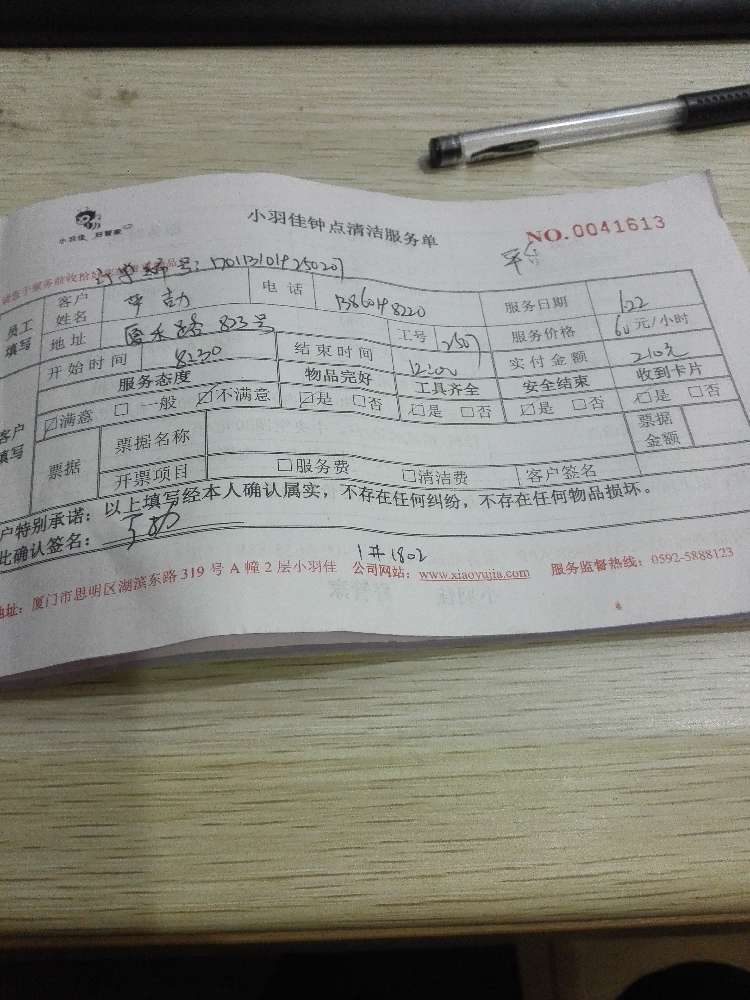 小羽佳 好管家
小羽佳钟点清洁服务单
NO.0041613
平台
订单编号：
员工填写 客户姓名 电话 服务日期 1.22
地址 823号 工号 2507 服务价格 60元/小时
开始时间 8:30 结束时间 12:00 实付金额 210元
服务态度 物品完好 工具齐全 安全结束 收到卡片
客户填写 ☑满意 □一般 □不满意 ☑是 □否 ☑是 □否 ☑是 □否 ☑是 □否
票据 票据名称 票据金额
开票项目 □服务费 □清洁费 客户签名
户特别承诺：以上填写经本人确认属实，不存在任何纠纷，不存在任何物品损坏。
此确认签名：
1#1802
地址：厦门市思明区湖滨东路 319 号 A 幢 2 层小羽佳 公司网站：www.xiaoyujia.com 服务监督热线：0592-5888123